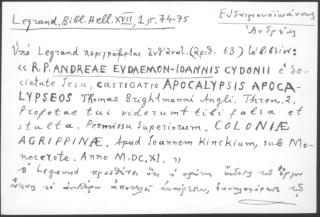 Legrand, Bibl. Hell. XVII, 1, σ. 74-75
Εὐδαιμονοϊωάννης
Ἀνδρέας
Ὑπὸ Legrand περιγράφεται ἐν (ἀριθ. 63) τὸ βιβλίον:
« R.P. ANDREAE EVDAEMON-IOANNIS CYDONII è So-
cietate Jesu, CASTIGATIO APOCALYPSIS APOCA-
LYPSEOS Thomae Brightmanni Angli. Thren. 2,
Profetae tui viderunt tibi falsa et
stulta. Permissu Superiorum. COLONIÆ
AGRIPPINÆ. Apud Ioannem Kinckium, sub Mo-
nocerote. Anno M.DC.XI. »
Ὁ Legrand προσθέτει ὅτι ἡ πρώτη ἔκδοσις τοῦ
τοῦ ἀποτελεῖ ἀναίρεσιν, τοῦ